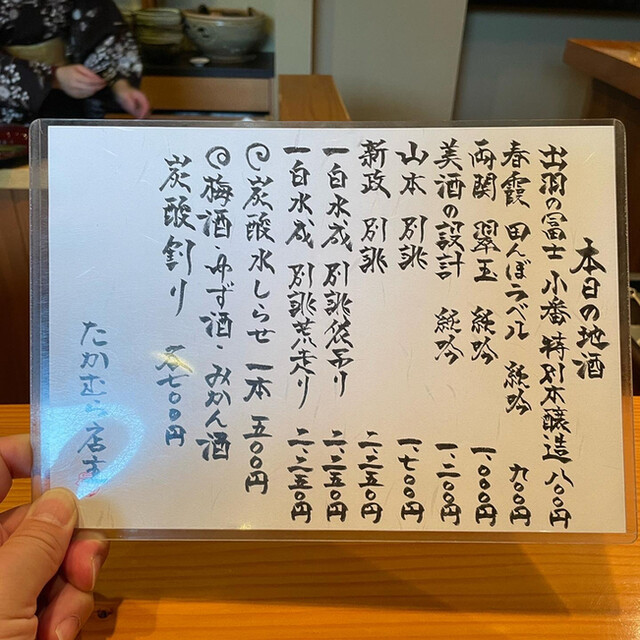 本日の地酒
出羽の冨士 小番 特別本醸造 八〇〇円
春霞 田んぼラベル 純吟 九〇〇円
両関 翠玉 純吟 一、〇〇〇円
美酒の設計 純吟 一、二〇〇円
山本 別誂 一、七〇〇円
新政 別誂 二、二五〇円
一白水成 別誂袋吊り 二、二五〇円
一白水成 別誂荒走り 二、二五〇円
炭酸水しらせ 一本 五〇〇円
梅酒・ゆず酒・みかん酒
炭酸割り 各七〇〇円
たかむら店主